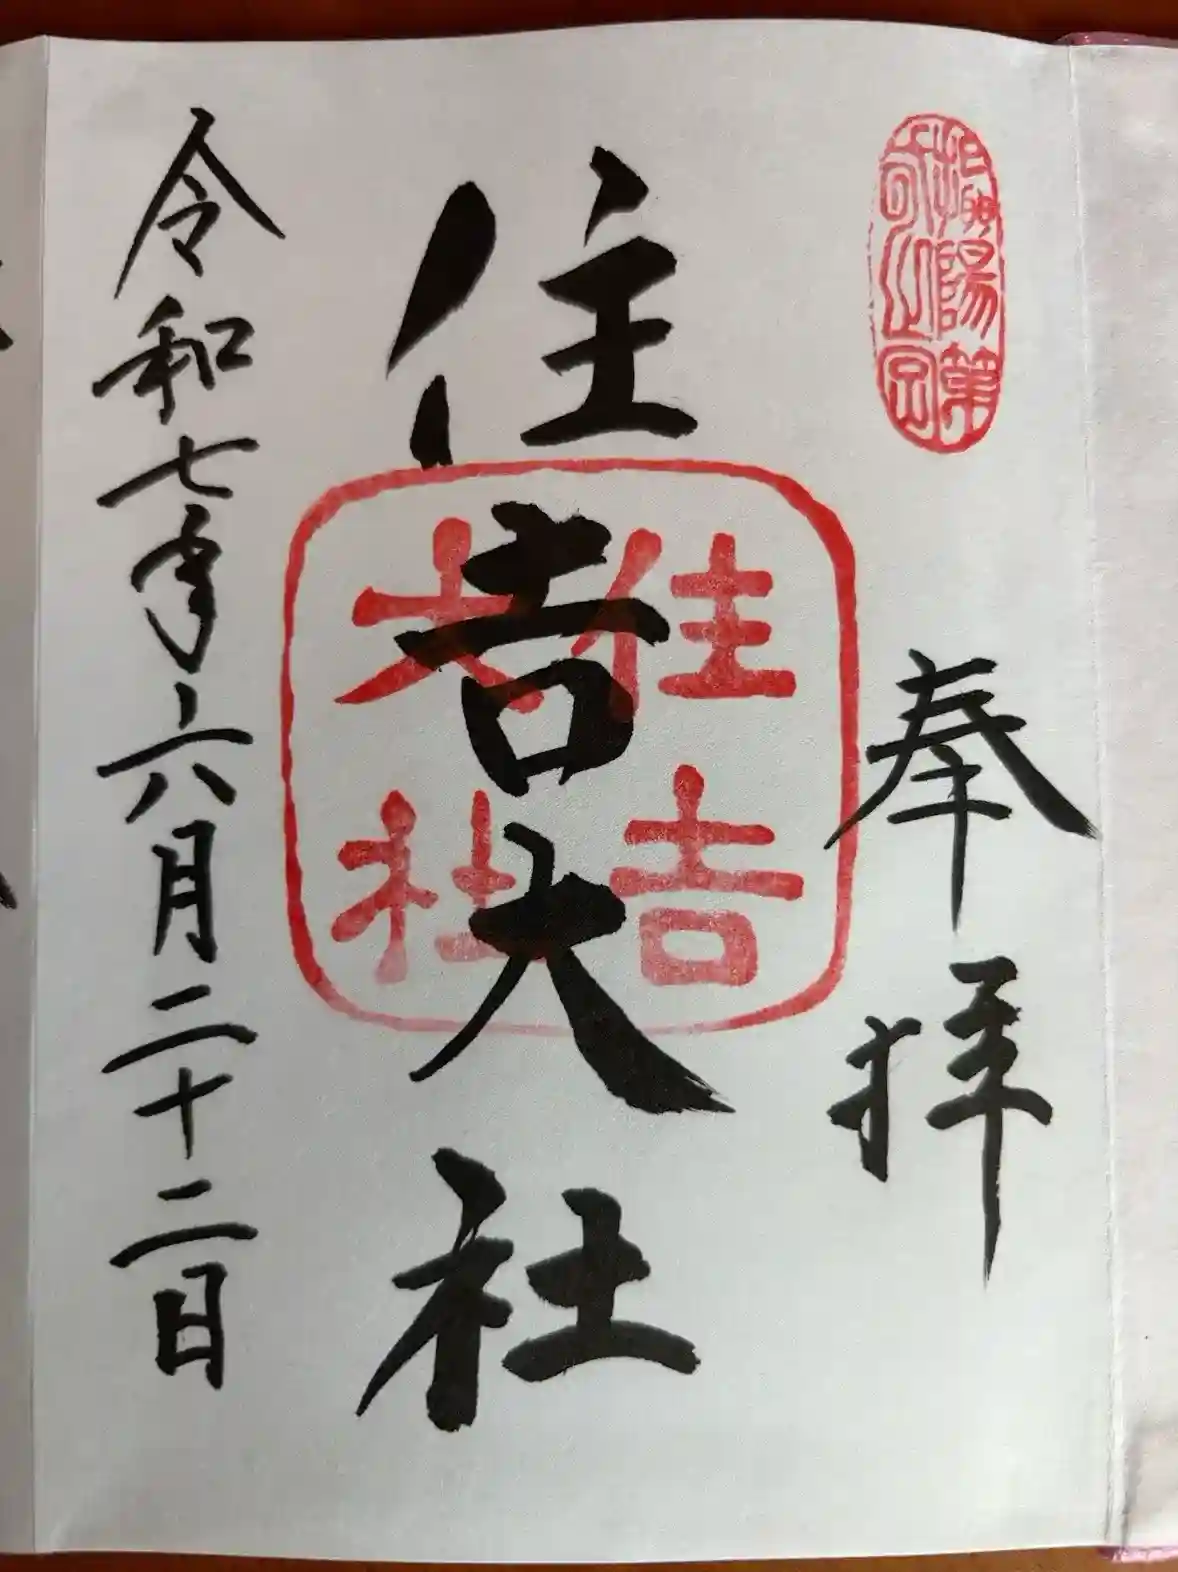 攝陽第
奉拝
住吉大社
住吉
大社
令和七年六月二十二日